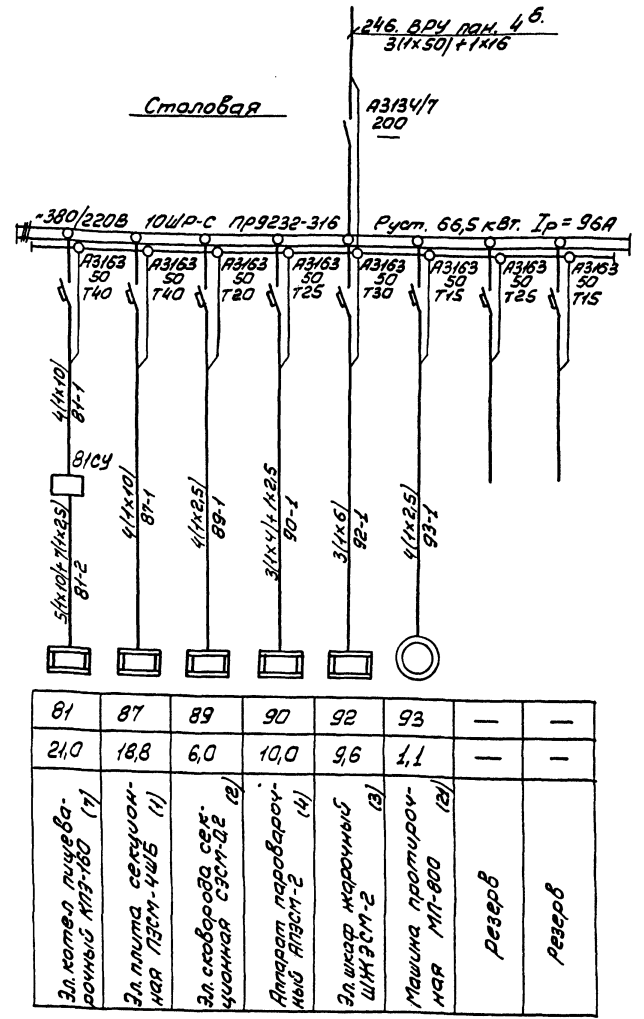 246. ВРУ пан. 4 б.
3(1х50)+1х16
Столовая
А3134/7
200
~380/220В 10ШР-С ПР9232-316 Руст. 66,5 кВт. Iр = 96А
А3163
50
Т40
А3163
50
Т40
А3163
50
Т20
А3163
50
Т25
А3163
50
Т30
А3163
50
Т15
А3163
50
Т25
А3163
50
Т15
4(1х10)
81-1
81СУ
5(1х10)+7(1х2,5)
81-2
4(1х10)
87-1
4(1х2,5)
89-1
3(1х4)+1х2,5
90-1
3(1х6)
92-1
4(1х2,5)
93-1
81 87 89 90 92 93 — —
21,0 18,8 6,0 10,0 9,6 1,1 — —
Эл. котел пищева-
рочный КПЭ-160 (7)
Эл. плита секцион-
ная ПЭСМ-4ШБ (1)
Эл. сковорода сек-
ционная СЭСМ-0,2 (2)
Аппарат пароварочн-
ый АПЭСМ-2 (4)
Эл. шкаф жарочный
ШЖЭСМ-2 (3)
Машина протироч-
ная МП-800 (21)
резерв
резерв